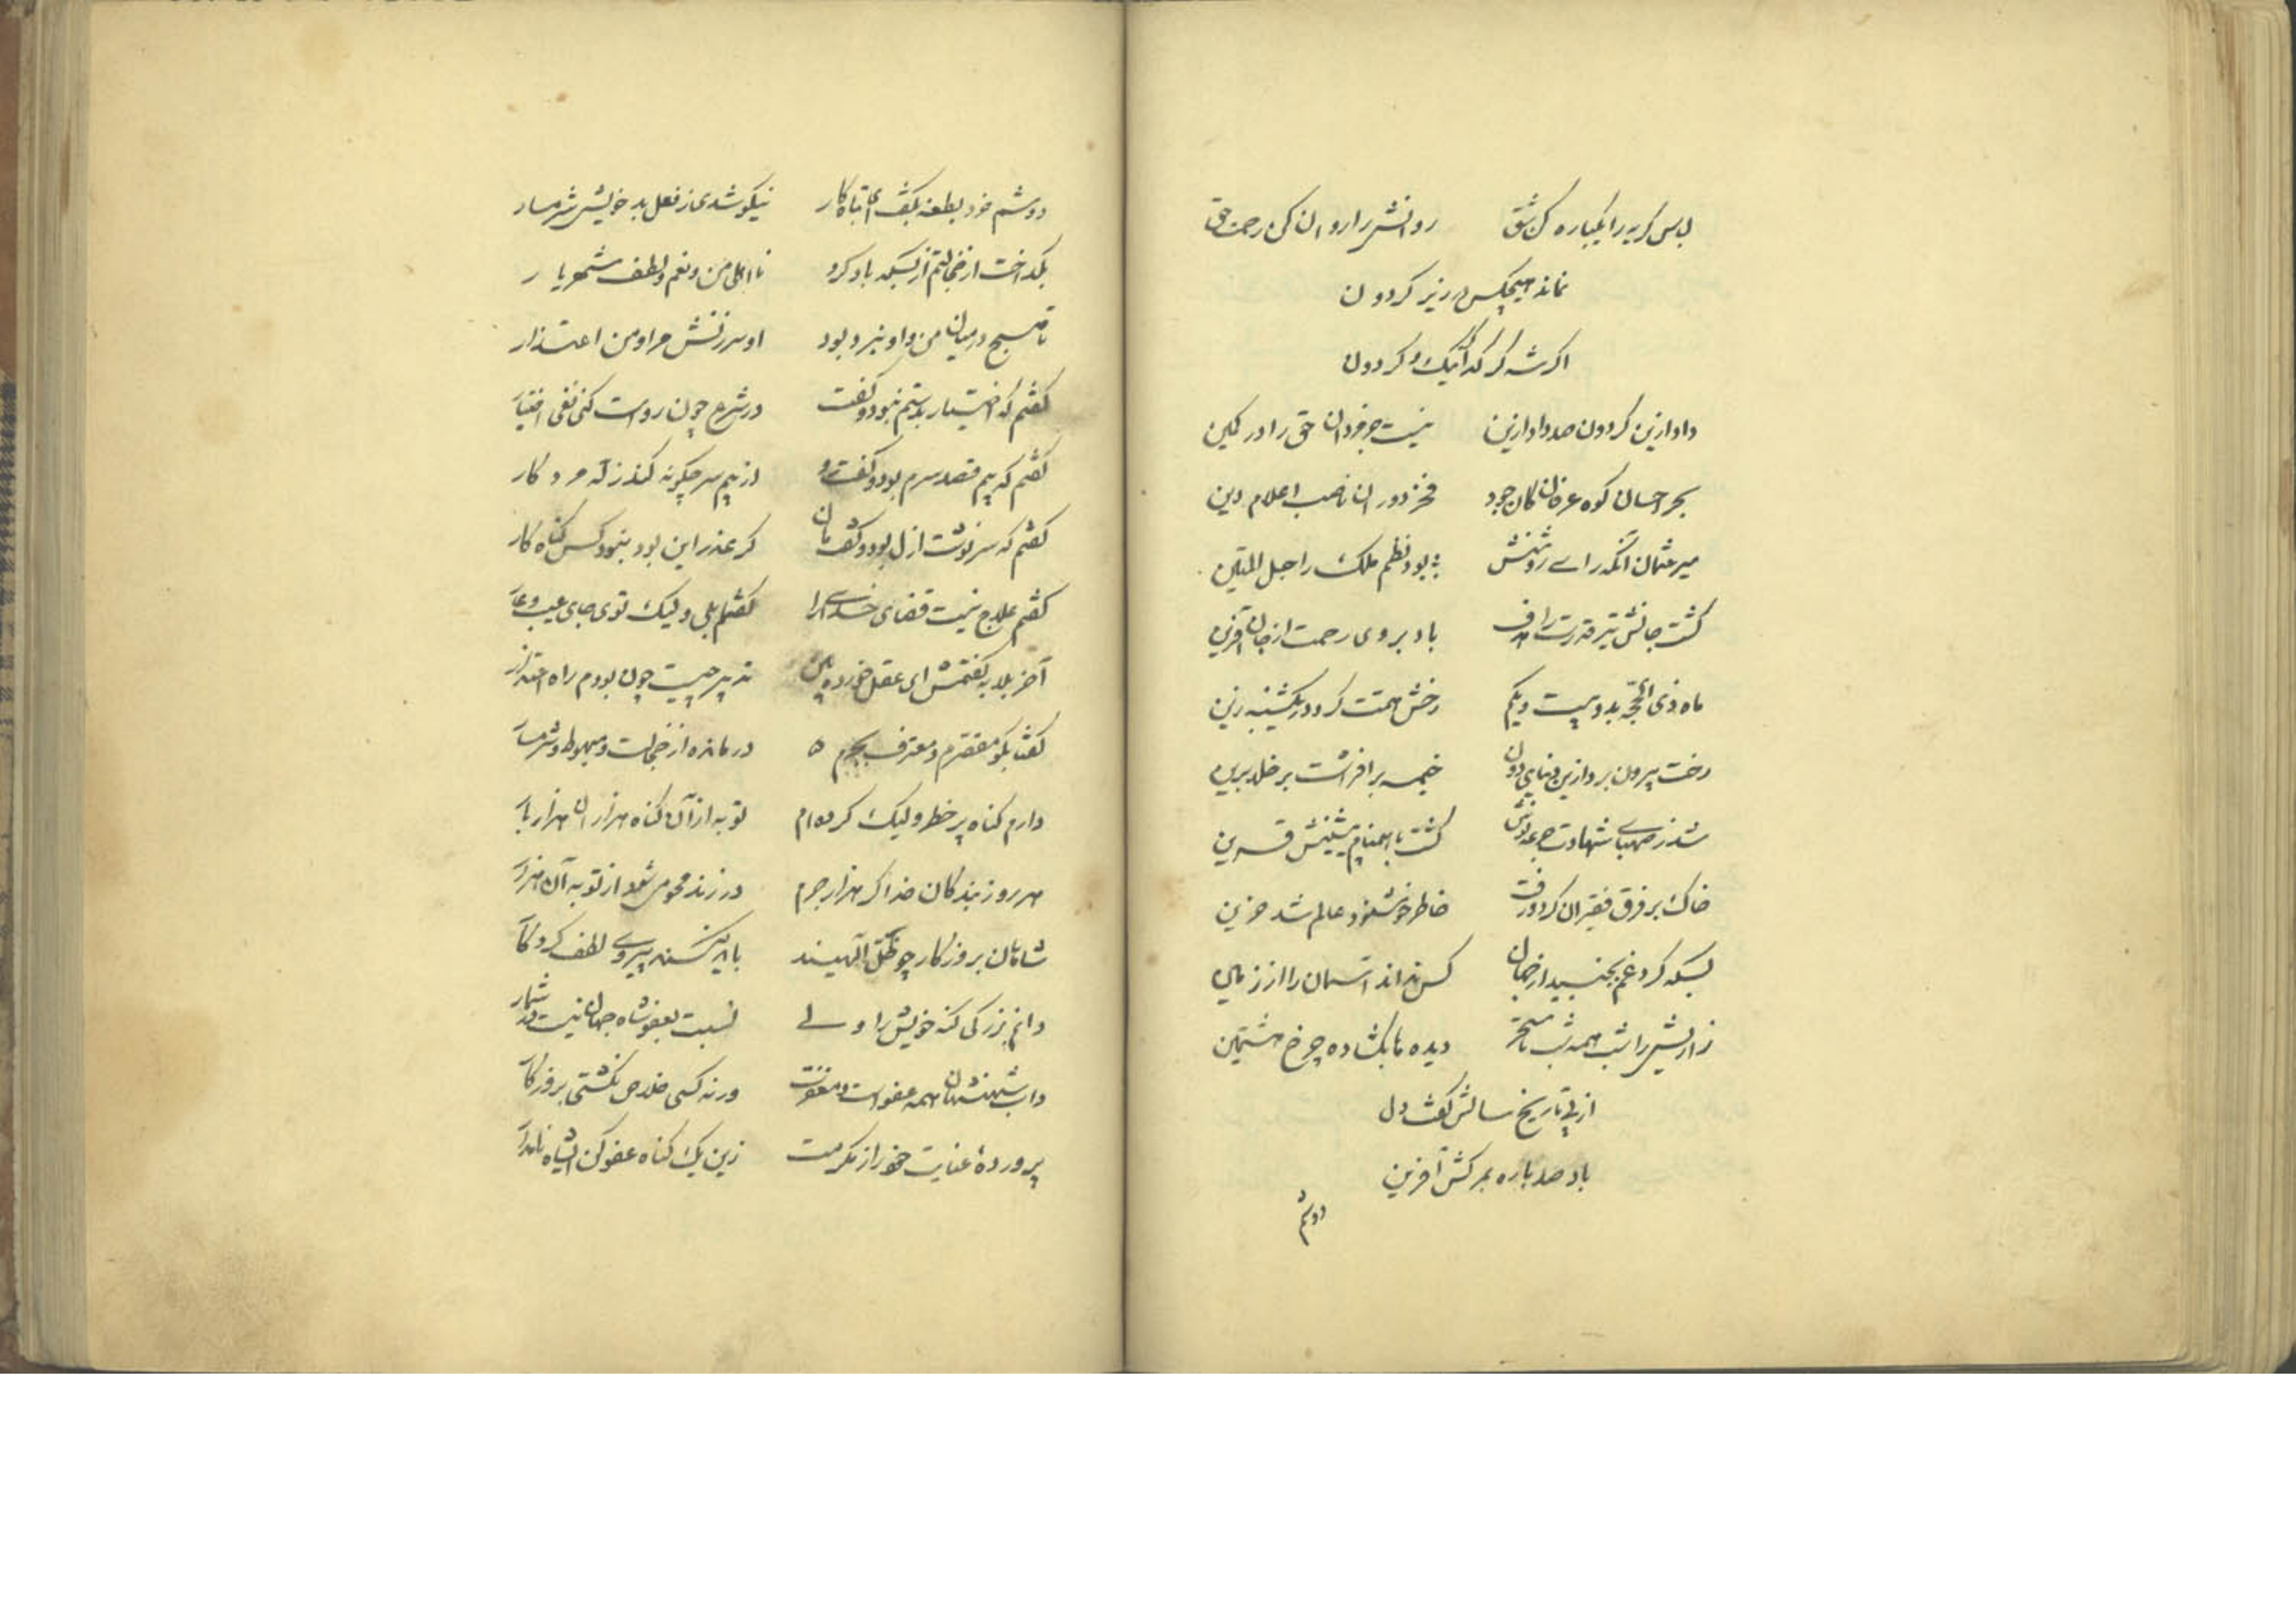 لباس گریه را یکباره کن شق روانش را روان کن رحمت حق
نماند هیچکس در زیر گردون
اگر شه گر گدا نیک و گر دون
داد ازین گردون صد داد ازین نیست جز خود ان حق را در کمین
بحر احسان کوه عرفان کان جود فخر دوران ناصب اعلام دین
میر عثمان آنکه رای روشنش بود نظم ملک را حبل المتین
گشت جانش تیر قدرت را هدف باد بروی رحمت از جان آفرین
ماه ذی الحجه بد و بیست و یکم رخش همت کرد در یکشنبه زین
رخت بیرون برد ازین دنیای دون خیمه بر افراشت بر خلد برین
شد ز صهبای شهادت جرعه نوش گشت با همنام پیشینش قرین
خاک بر فرق فقیران کرد و رفت خاطر خوشنود عالم شد حزین
بسکه گرد غم بجنبید از جهان کس نداند آسمان را از زمین
زارئیش را شب همه شب تا سحر دیده ها بگشاده چرخ هشتمین
از پی تاریخ سالش گفت دل
باد صد باره بمرگش آفرین
دوشم
دوشم خرد بطعنه بگفت ای تباه کار نیکو شدی ز فعل بد خویش شرمسار
بگداخت از خجالتم از بسکه یاد کرد نااهلی من و نعم و لطف شهریار
تا صبح در میان من و او نبرد بود او سرزنش مرا و من اعتذار
گفتم که اختیار بدستم نبود و گفت در شرع چون رواست کنی نفی اختیار
گفتم که بیم قصد سرم بود و گفت از بیم سر چگونه گذر زله مرد کار
گفتم که سرنوشت ازل بود و گفت هان گر عذر این بود نبود کس گناه کار
گفتم علاج نیست قضای خدای را گفتا بلی ولیک توی جای عیب و عار
آخر بلابه گفتمش ای عقل خورده بین تدبیر چیست چون بودم راه اعتذار
گفتا بگو مقصرم و معترف بجرم درمانده از خجالت و مبهوط و شرمسار
دارم گناه پر خطر و لیک کرده ام توبه از آن گناه هزاران هزار بار
هر روز بندگان خدا گر هزار جرم ورزند محو می شود از توبه آن هزار
شاهان بروزگار چو ظل آلهیند باید کنند پیروی لطف کردگار
دانم بزرگی گنه خویش را ولی نسبت بعفو شاه جهان نیست در شمار
داب شهنشهان همه عفو است و مغفرت ورنه کسی خلاص نگشتی بروزگار
پرورده عنایت خود را ز مکرمت زین یک گناه عفو کن ای شاه نامدار